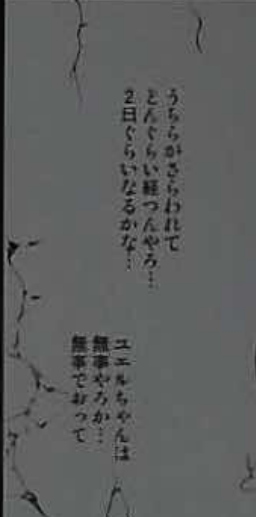 うちらがさらわれて
どんぐらい経つんやろ…
2日ぐらいなるかな…
ユエルちゃんは
無事やろか…
無事でおって